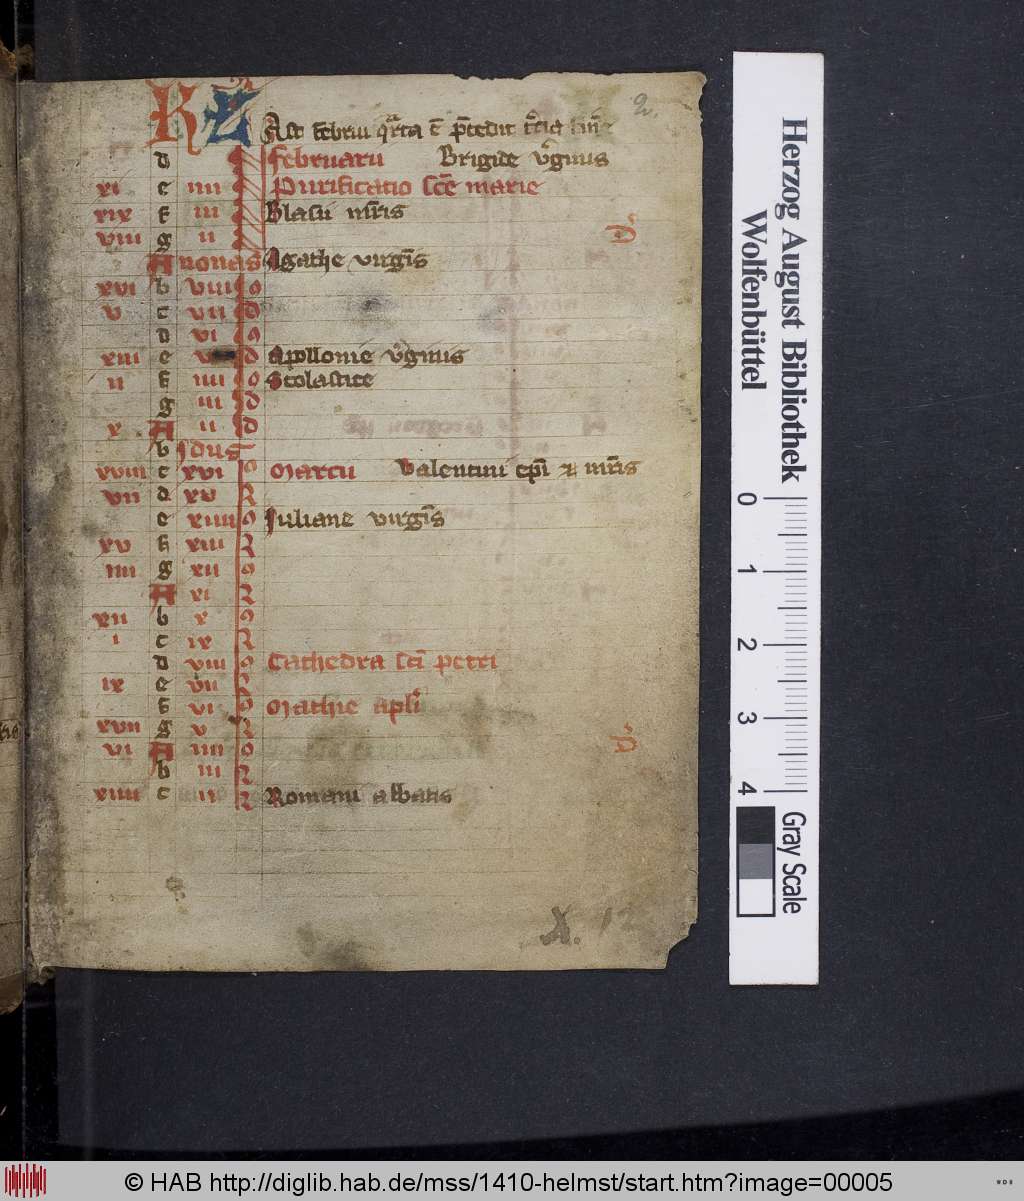 2.
KL Ast febru q̄rta ē p̄cedit t̄cia finē
d februarii Brigide v̄ginis
xi e iiii Purificatio scē marie
xix f iii Blasii mr̄is
viii g ii D
A nonas Agathe virgīs
xvi b viii
v c vii
d vi
xiii e v Apollonie v̄ginis
ii f iiii Scolastice
g iii
x A ii
b idus
xviii c xvi Marcii Valentini epī et mr̄is
vii d xv
e xiiii Iuliane virgīs
xv f xiii
iiii g xii
A xi
xii b x
i c ix
d viii Cathedra scī petri
ix e vii
f vi Mathie apli
xvii g v
vi A iiii
b iii
xiiii c ii Romani abbatis
X. 12
Herzog August Bibliothek
Wolfenbüttel
0 1 2 3 4
Gray Scale
© HAB http://diglib.hab.de/mss/1410-helmst/start.htm?image=00005